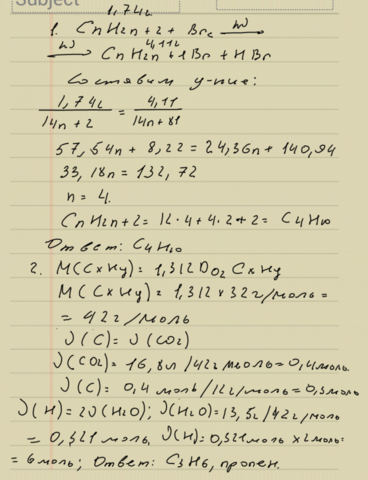 Subject
1,74г
1. CnH2n+2 + Br2 hν→
hν→ CnH2n+1Br + HBr
4,11г
Составим у-ние:
1,74г/14n+2 = 4,11/14n+81
57,54n + 8,22 = 24,36n + 140,94
33,18n = 132,72
n = 4.
CnH2n+2 = 12·4+4·2+2 = C4H10
Ответ: C4H10
2. M(CxHy) = 1,312 DO2 CxHy
M(CxHy) = 1,312 × 32г/моль =
= 42г/моль
ν(C) = ν(CO2)
ν(CO2) = 16,8л/42г моль = 0,4моль.
ν(C) = 0,4 моль/12г/моль = 0,3моль
ν(H) = 2ν(H2O); ν(H2O) = 13,5г/42г/моль
= 0,321 моль. ν(H) = 0,321моль × 2моль =
= 6моль; Ответ: C3H6, пропен.